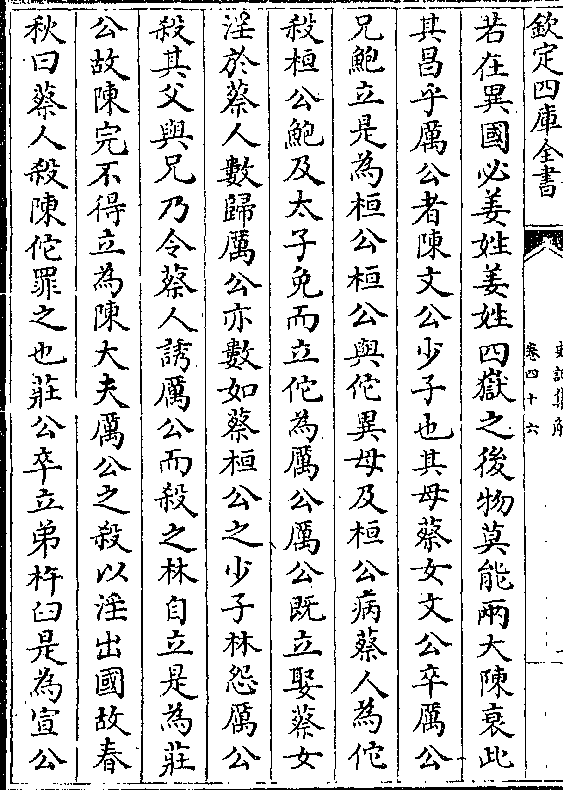 欽定四庫全書
卷四十六
若在異國必姜姓姜姓四嶽之後物莫能兩大陳衰此
其昌乎厲公者陳文公少子也其母蔡女文公卒厲公
兄鮑立是為桓公桓公與佗異母及桓公病蔡人為佗
殺桓公鮑及太子免而立佗為厲公厲公既立娶蔡女
淫於蔡人數歸厲公亦數如蔡桓公之少子林怨厲公
殺其父與兄乃令蔡人誘厲公而殺之林自立是為莊
公故陳完不得立為陳大夫厲公之殺以淫出國故春
秋曰蔡人殺陳佗罪之也莊公卒立弟杵臼是為宣公